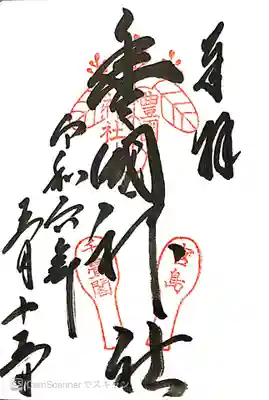 奉拝
豊國神社
豊國
神社
宮島
千畳閣
令和六年
五月十二日
CamScanner でスキャン